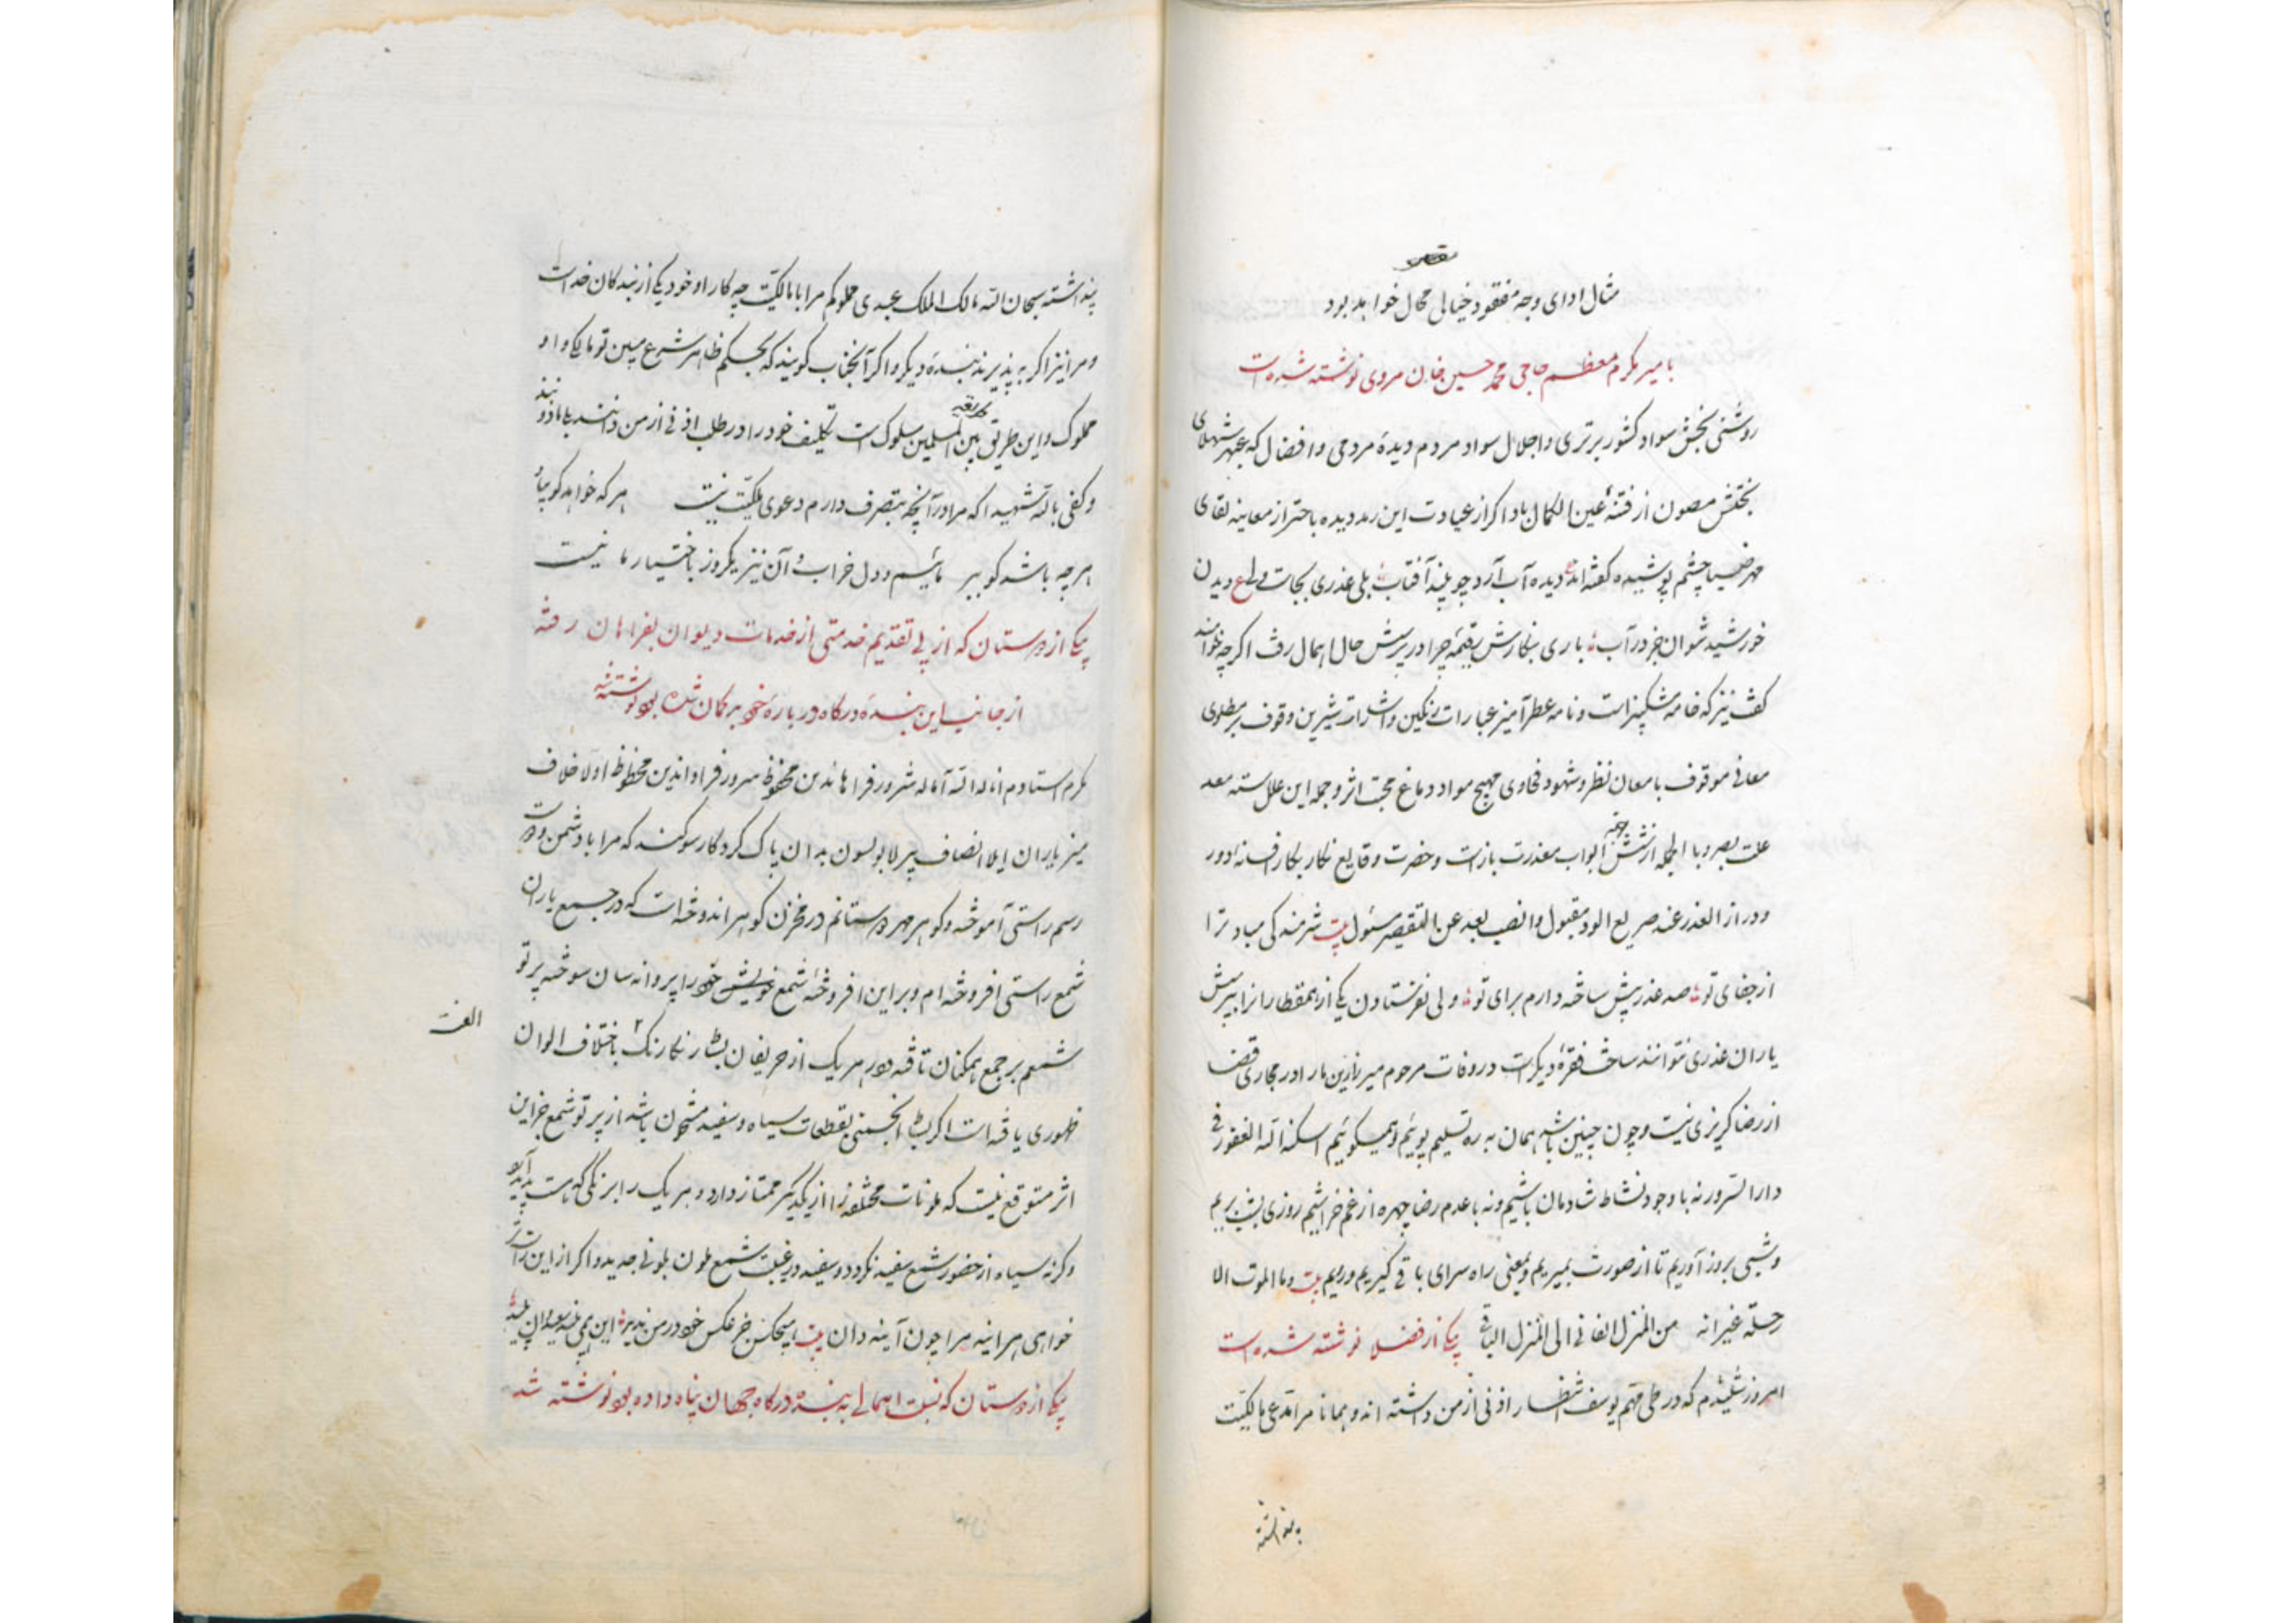 مثال ادای وجه مفقود خیالی محال خواهد بود
بامیر مکرم معظم حاجی محمد حسین خان مروی نوشته شده است
روشنی بخش سواد کشور برتری و اجلال سواد مردم دیدهٔ مردمی و افضال که عبهر شهلای
بختش مصون از فتنهٔ عین الکمال باد اکر از عیادت این رمد دیده باحتراز معاینه لقای
مهر ضیا چشم پوشیده کفته اند دیده آب آرد چو بیند آفتاب بلی عذری بجاست ولی ع دیدن
خورشید نتوان جز در آب باری بنکارش رقیمه چرا در پرسش حال اهمال رفت اکرچه توانند
کفت نیز که خامه مشکبیز است و نامه عطرآمیز عبارات رنکین و اشارات شیرین وقوف بر مطاوی
معانی موقوف بامعان نظر و شهود فحاوی مهیج مواد دماغ محبت اثر و جمله این علل سته معد
علت بصر و بالجمله از شش جهة ابواب معذرت باز است و حضرت وقایع نکار بکار افسانه دور
و دراز العذر عند صریع الود مقبول و انصب بعد عن التقصیر مسئول بیت شرمندکی مباد ترا
از جفای تو صد عذر پیش ساخته دارم برای تو ولی نفرستادن یکی از همقطاران را بپرسش
یاران عذری نتوانند ساخت فقرهٔ دیکر است در وفات مرحوم میرزا زین ما را در مجاری قضا
از رضا کریزی نیست و چون چنین باشد همان به ره تسلیم پوئیم و همیکوئیم اسکنه الله الغفور فی
دار السرور نه با وجود نشاط شادمان باشیم و نه با عدم رضا چهره از غم خراشیم روزی بشب بریم
و شبی بروز آوریم تا از صورت بمیریم و بمعنی راه سرای باقی کیریم و ریم بیت و ما الموت الا
رحلة غیر انه من المنزل الفانی الی المنزل الباقی یکی از فضلا نوشته شده است
امروز شنیدم که در طی قهم یوسف انتظار اذنی از من داشته اند و همانا مرا مدعی مالکیت
پنداشته
پنداشته سبحان الله مالک الملک عبدی مملوکم مرا با مالکیت چه کار او خود یکی از بندکان خداست
و مرا نیز اکر به پذیرند بندهٔ دیکر و اکر آنجناب کویند که بحکم ظاهر شرع مبین تو مالکی و او
مملوک و این طریق بین المسلمین مسلوک است تکلیف خود را در طلب اذنی از من دانند
و کفی بالله شهیدا که مرا در آنچه بتصرف دارم دعوی ملکیت نیست هر که خواهد کو بیا
هر چه باشد کو ببر مائیم و دل خراب و آن نیز یکروز باختیار ما نیست
یکی از دوستان که از پی تقدیم خدمتی از خدمات دیوان بفراهان رفته
از جانب این بندهٔ درکاه در بارهٔ خود بدکمان شده بود نوشته
مکرم استادم اناله الله آماله شرور فراهاندین محفوظ سرور فراواندین محظوظ اولا خلاف
میز یاران ایلا انصاف بیر لا بولسون بدان پاک کردکار سوکند که مرا با دشمن و دوست
رسم راستی آموخته و کوهر مهر دوستانم در مخزن کوهر اندوخته است که در جمع یاران
شمع راستی افروخته ام و بر این افروخته شمع خویش خود را پروانه سان سوخته پرتو
شمعم بر جمع همکنان تافته و در هر یک از حریفان بشار نکارنک باختلاف الوان
الفت
ظهوری یافته است اکر بشد انجمنی بقطعات سیاه و سفید مشحون باشد از پرتو شمع جز این
اثر متوقع نیست که ملونات مختلفه را از یکدیکر ممتاز دارد و هر یک را برنکی که هست پدید آرد
و کرنه سیاه از حضور شمع سفید نکردد و سفید در غیبت شمع ملون بلونی جدید و اکر از این راست‌تر
خواهی هر اینه مرا چون آینه دان بیت هیچکس جز عکس خود در من ندید
یکی از دوستان که نسبت اهمالی به بندهٔ درکاه جهان پناه داده بود نوشته شد